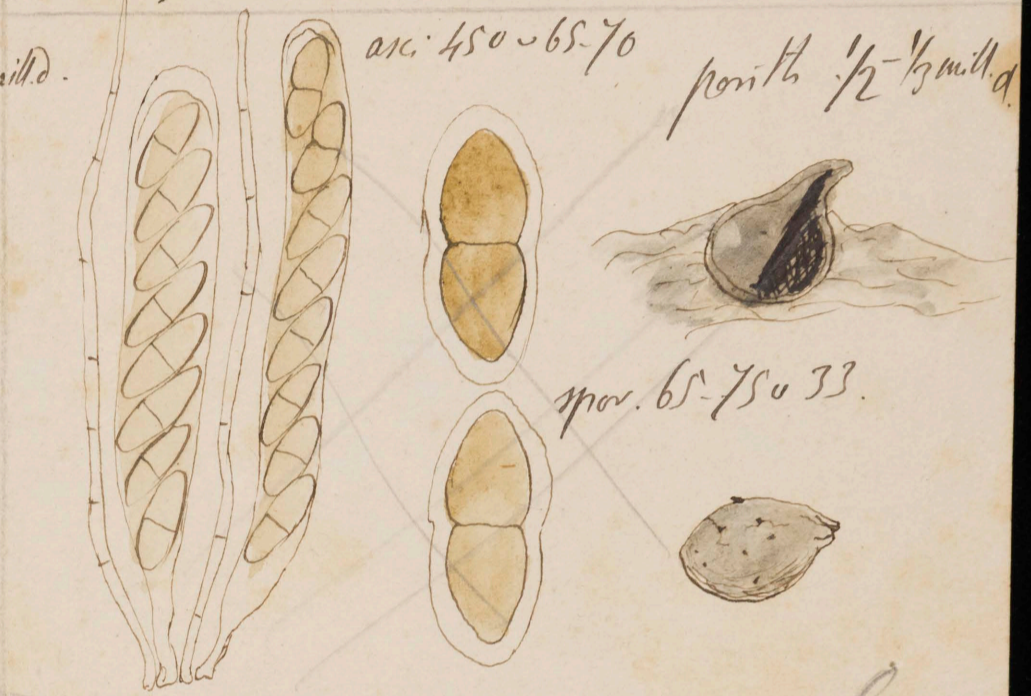 mill.d.
asci 450 ᴗ 65-70
perith 1/2-1/3 mill. d.
spor. 65-75 ᴗ 33.